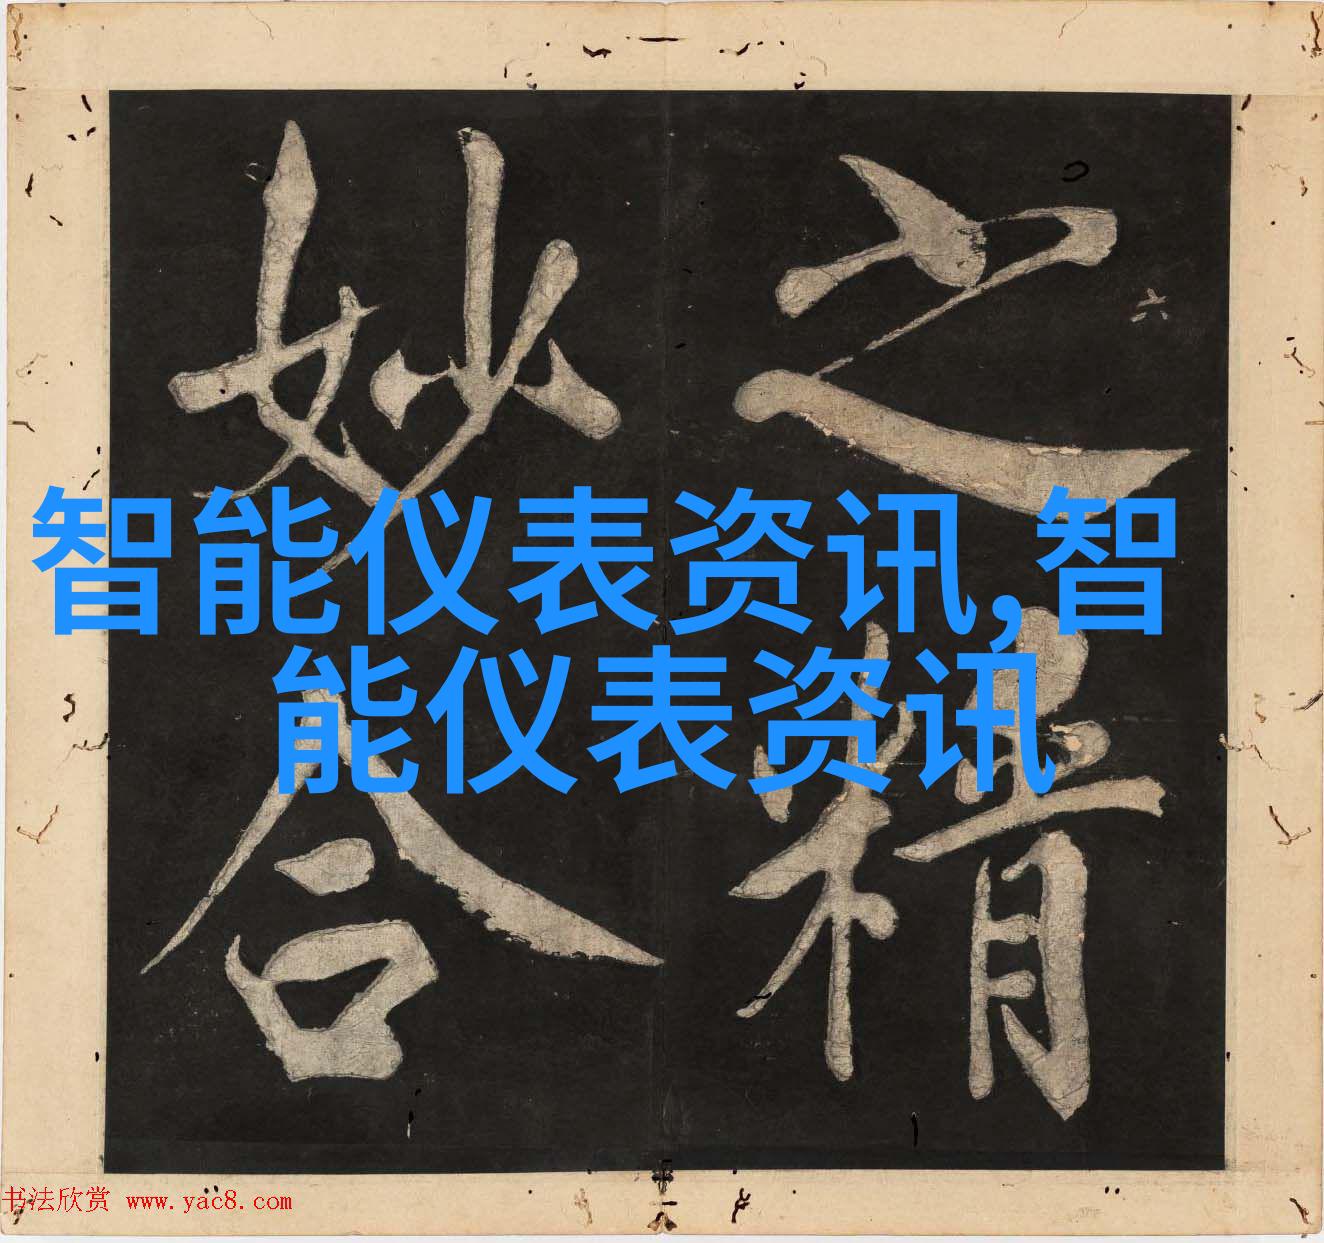 之精
妙合
六
智能仪表资讯,智
能仪表资讯
书法欣赏 www.yac8.com